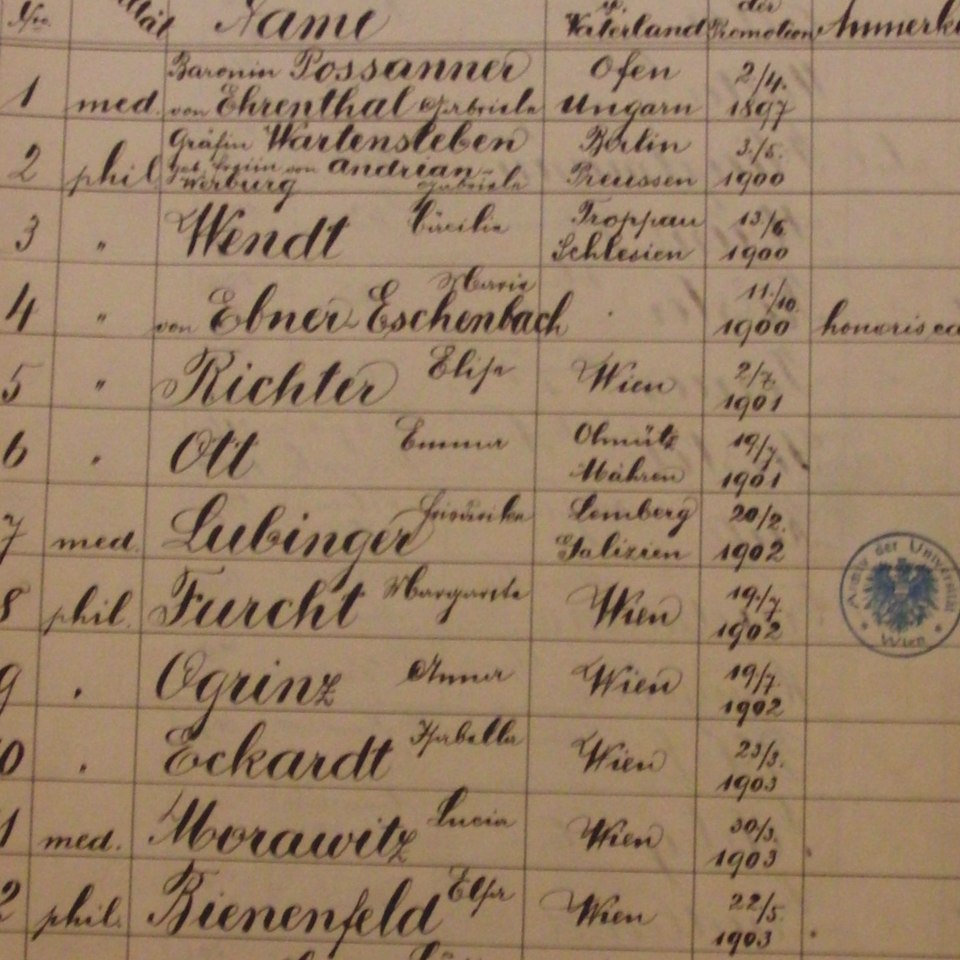 Nro. Name u. Vaterland der Promotion Anmerk
1 med. Baronin Possanner von Ehrenthal Gabriele Ofen Ungarn 2/4. 1897
2 phil Gräfin Wartensleben geb. Freiin von Andrian-Werburg Gabriele Berlin Preussen 3./5. 1900
3 " Wendt Cäcilie Troppau Schlesien 13/6 1900
4 " von Ebner-Eschenbach Marie 11./10. 1900 honoris ca
5 " Richter Elise Wien 2/7. 1901
6 " Ott Emma Olmütz Mähren 19/7. 1901
7 med. Lubinger Friederike Lemberg Galizien 20/2. 1902
8 phil. Furcht Margarete Wien 19./7. 1902
9 " Ogrinz Anna Wien 19/7. 1902
0 " Eckardt Isabella Wien 23/3. 1903
1 med. Morawitz Lucia Wien 30/3. 1903
2 phil. Bienenfeld Elsa Wien 22/5. 1903
Archiv der Universität Wien